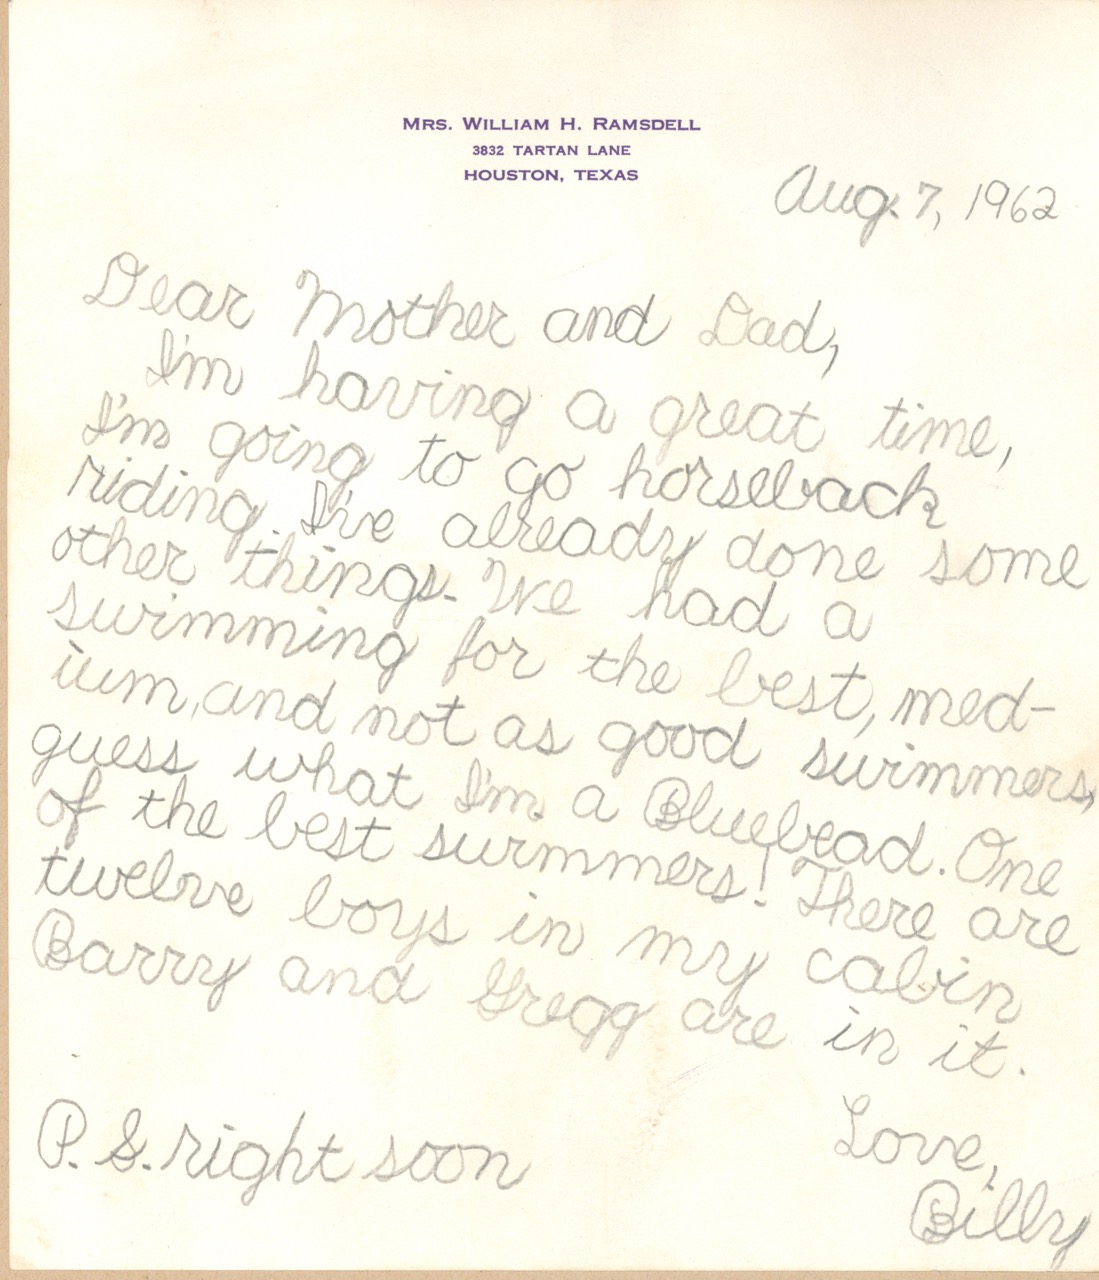 MRS. WILLIAM H. RAMSDELL
3832 TARTAN LANE
HOUSTON, TEXAS
Aug. 7, 1962
Dear Mother and Dad,
I'm having a great time,
I'm going to go horseback
riding. I've already done some
other things. We had a
swimming for the best, med-
ium, and not as good swimmers,
guess what I'm a Bluebead. One
of the best swimmers! There are
twelve boys in my cabin
Barry and Gregg are in it.
Love,
P. S. right soon
Billy